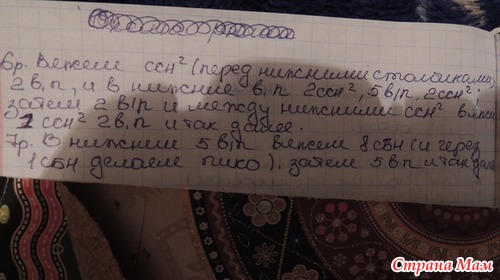 6р. Вяжем ссн² (перед нижними столбиками,
2в.п, и в нижние в.п 2ссн², 5в/п, 2ссн²;
затем 2 в/п и между нижними ссн² вяжем
1 ссн² 2в.п и так далее.
7р. В нижнии 5в/п вяжем 8сбн (и через
1сбн делаем пико). затем 5вп и так дал
Страна Мам